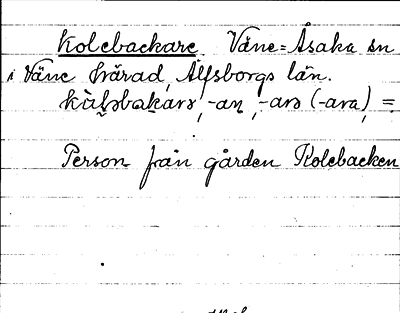 Kolebackare Väne-Åsaka sn
i Väne härad, Älfsborgs län.
-an, -arə (-ara) =
Person från gården Kolebacken